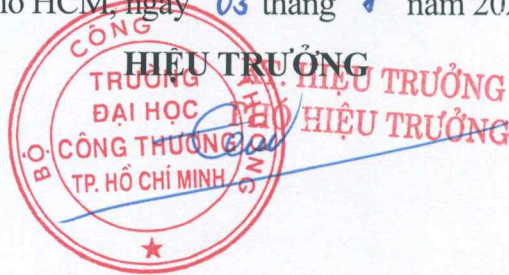 HCM, ngày 03 tháng năm 202
HIỆU TRƯỞNG
KT. HIỆU TRƯỞNG
PHÓ HIỆU TRƯỞNG
BỘ CÔNG THƯƠNG
TRƯỜNG
ĐẠI HỌC
CÔNG THƯƠNG
TP. HỒ CHÍ MINH